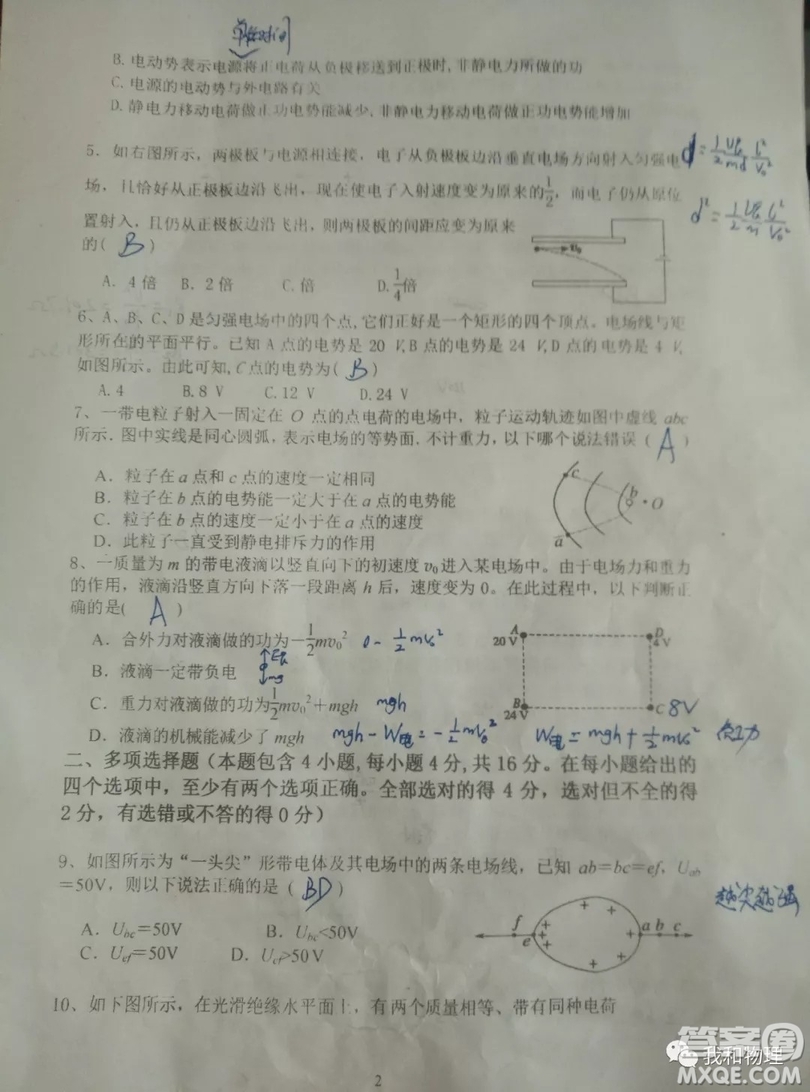 B. 电动势表示电源将正电荷从负极移送到正极时，非静电力所做的功
C. 电源的电动势与外电路有关
D. 静电力移动电荷做正功电势能减少，非静电力移动电荷做正功电势能增加
5．如右图所示，两极板与电源相连接，电子从负极板边沿垂直电场方向射入匀强电
场，且恰好从正极板边沿飞出，现在使电子入射速度变为原来的1/2，而电子仍从原位
置射入，且仍从正极板边沿飞出，则两极板的间距应变为原来
的( B )
A．4倍 B．2倍 C. 倍 D. 1/4倍
6、A、B、C、D是匀强电场中的四个点，它们正好是一个矩形的四个顶点。电场线与矩
形所在的平面平行。已知A点的电势是 20 V，B点的电势是 24 V，D点的电势是 4 V，
如图所示。由此可知，C点的电势为( B )
A. 4 B. 8 V C. 12 V D. 24 V
7、一带电粒子射入一固定在 O 点的点电荷的电场中，粒子运动轨迹如图中虚线 abc
所示．图中实线是同心圆弧，表示电场的等势面．不计重力，以下哪个说法错误（ A ）
A．粒子在 a 点和 c 点的速度一定相同
B．粒子在 b 点的电势能一定大于在 a 点的电势能
C．粒子在 b 点的速度一定小于在 a 点的速度
D．此粒子一直受到静电排斥力的作用
c b O a
8、一质量为 m 的带电液滴以竖直向下的初速度 v₀ 进入某电场中。由于电场力和重力
的作用，液滴沿竖直方向下落一段距离 h 后，速度变为 0。在此过程中，以下判断正
确的是( A )
A．合外力对液滴做的功为－1/2mv₀² 0 - 1/2mv₀²
B．液滴一定带负电 mg
C．重力对液滴做的功为1/2mv₀²＋mgh mgh
D．液滴的机械能减少了 mgh mgh - W电 = -1/2mv₀² W电 = mgh + 1/2mv₀²
A 20 V D 4 V
B 24 V C 8V
二、多项选择题（本题包含 4 小题，每小题 4 分，共 16 分。在每小题给出的
四个选项中，至少有两个选项正确。全部选对的得 4 分，选对但不全的得
2 分，有选错或不答的得 0 分）
9、如图所示为“一头尖”形带电体及其电场中的两条电场线，已知 ab=bc=ef，Uab
=50V，则以下说法正确的是（ BD ）
越尖越强
A．Ubc=50V B．Ubc<50V
C．Uef=50V D．Uef>50V
f e a b c
10、如下图所示，在光滑绝缘水平面上，有两个质量相等、带有同种电荷
2
答案圈
我和物理
MXQE.COM